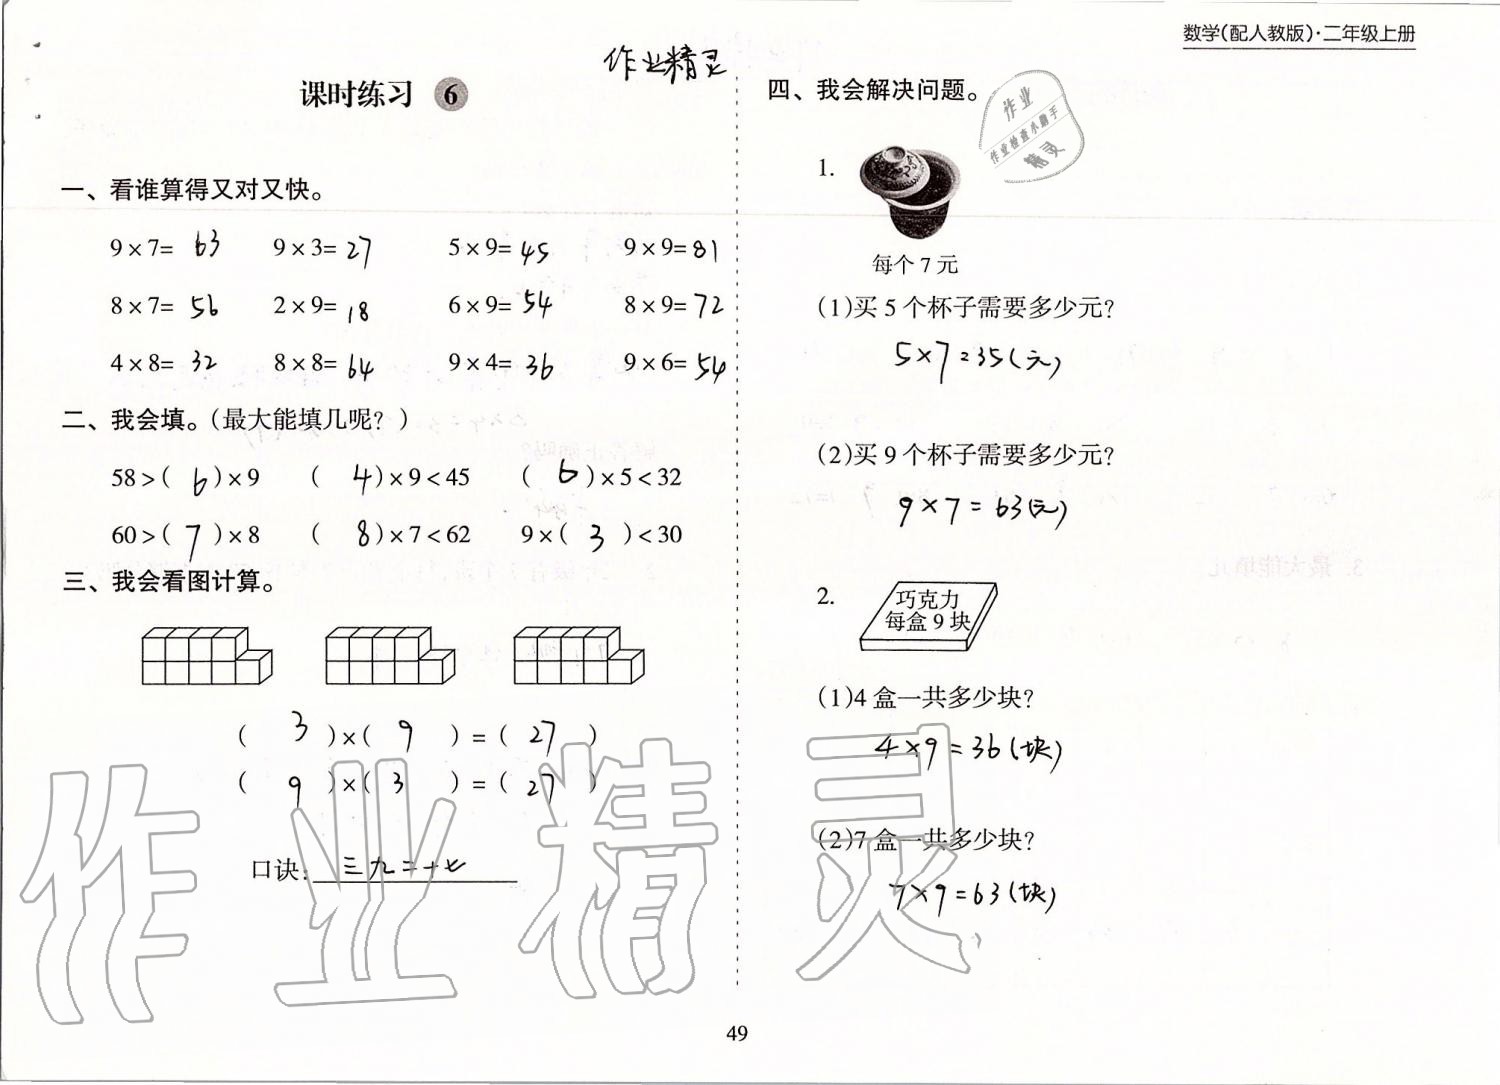 数学(配人教版)·二年级上册
作业精灵
课时练习 6
一、看谁算得又对又快。
9×7= 63 9×3= 27 5×9= 45 9×9= 81
8×7= 56 2×9= 18 6×9= 54 8×9= 72
4×8= 32 8×8= 64 9×4= 36 9×6= 54
二、我会填。(最大能填几呢？)
58>( 6 )×9 ( 4 )×9<45 ( 6 )×5<32
60>( 7 )×8 ( 8 )×7<62 9×( 3 )<30
三、我会看图计算。
( 3 )×( 9 )=( 27 )
( 9 )×( 3 )=( 27 )
口诀: 三九二十七
四、我会解决问题。
作业
作业检查小助手
精灵
1.
每个7元
(1)买5个杯子需要多少元?
5×7=35(元)
(2)买9个杯子需要多少元?
9×7=63(元)
2.
巧克力
每盒9块
(1)4盒一共多少块?
4×9=36(块)
(2)7盒一共多少块?
7×9=63(块)
作业精灵
49